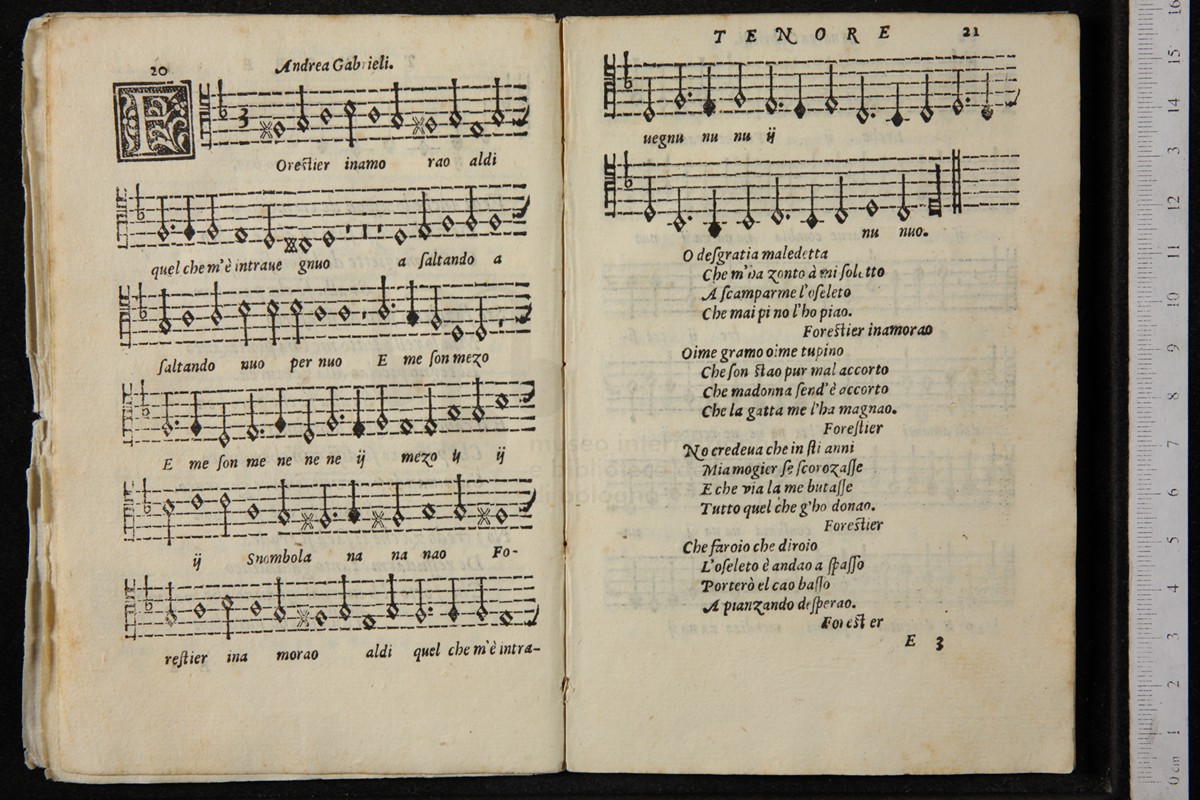 20
Andrea Gabrieli.
F
3
Orestier inamo rao aldi
quel che m'è intraue gnuo a saltando a
saltando nuo per nuo E me son mezo
E me son me ne ne ne ij mezo ij ij
ij Snombola na na nao Fo-
restier ina morao aldi quel che m'è intra-
TENORE 21
uegnu nu nu ij
nu nuo.
O desgratia maledetta
Che m'ha zonto à mi soletto
A scamparme l'oseleto
Che mai pi no l'ho piao.
Forestier inamorao
Oime gramo oime tupino
Che son stao pur mal accorto
Che madonna send'è accorto
Che la gatta me l'ha magnao.
Forestier
No credeua che in sti anni
Mia mogier se scorozasse
E che via la me butasse
Tutto quel che g'ho donao.
Forestier
Che faroio che diroio
L'oseleto è andao a spasso
Porterò el cao basso
A pianzando desperao.
Forestier
E 3
museo inter
e biblioteca de
di bologna
0 cm 1 2 3 4 5 6 7 8 9 10 11 12 13 14 15 16